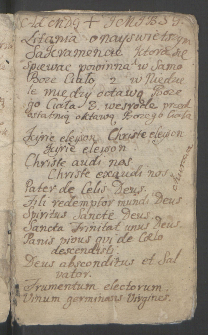 Litania o nayswietszym
Sakramencie Ktora się
Spiewac powinna w Samo
Boze Ciało, 2 w Niedzie
le miedzy octawą Boze
go Ciała 3. we srode przed
ostatnią oktawą Bozego Ciała
Kyrie eleyson Christe eleyson
Kyrie eleyson
Christe audi nos
Christe exaudi nos
Pater de Celis Deus.
Fili redemptor mundi Deus
Spiritus Sancte Deus.
Sancta Trinitas unus Deus
Panis vivus qui de Cœlo
descendisti
Deus absconditus et Sal
vator.
Frumentum electorum
Vinum germinans Virgines.